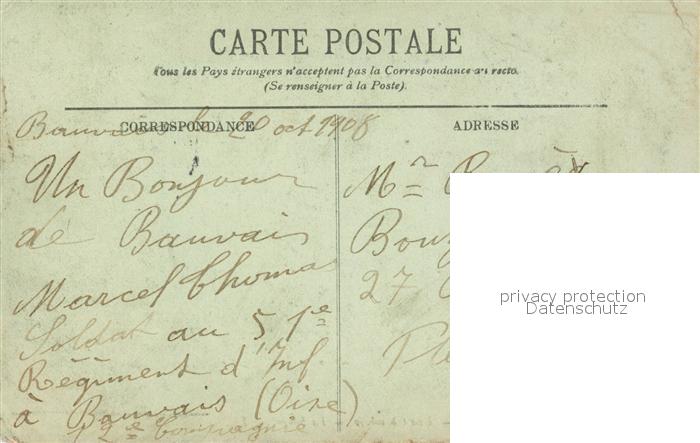 CARTE POSTALE
Tous les Pays étrangers n'acceptent pas la Correspondance au recto.
(Se renseigner à la Poste).
CORRESPONDANCE
ADRESSE
Bauvais le 20 oct 1908
Un Bonjour
de Bauvais
Marcel Thomas
Soldat au 51e
Régiment d'Inf.
à Bauvais (Oise)
12e Compagnie
Mr
27
privacy protection
Datenschutz